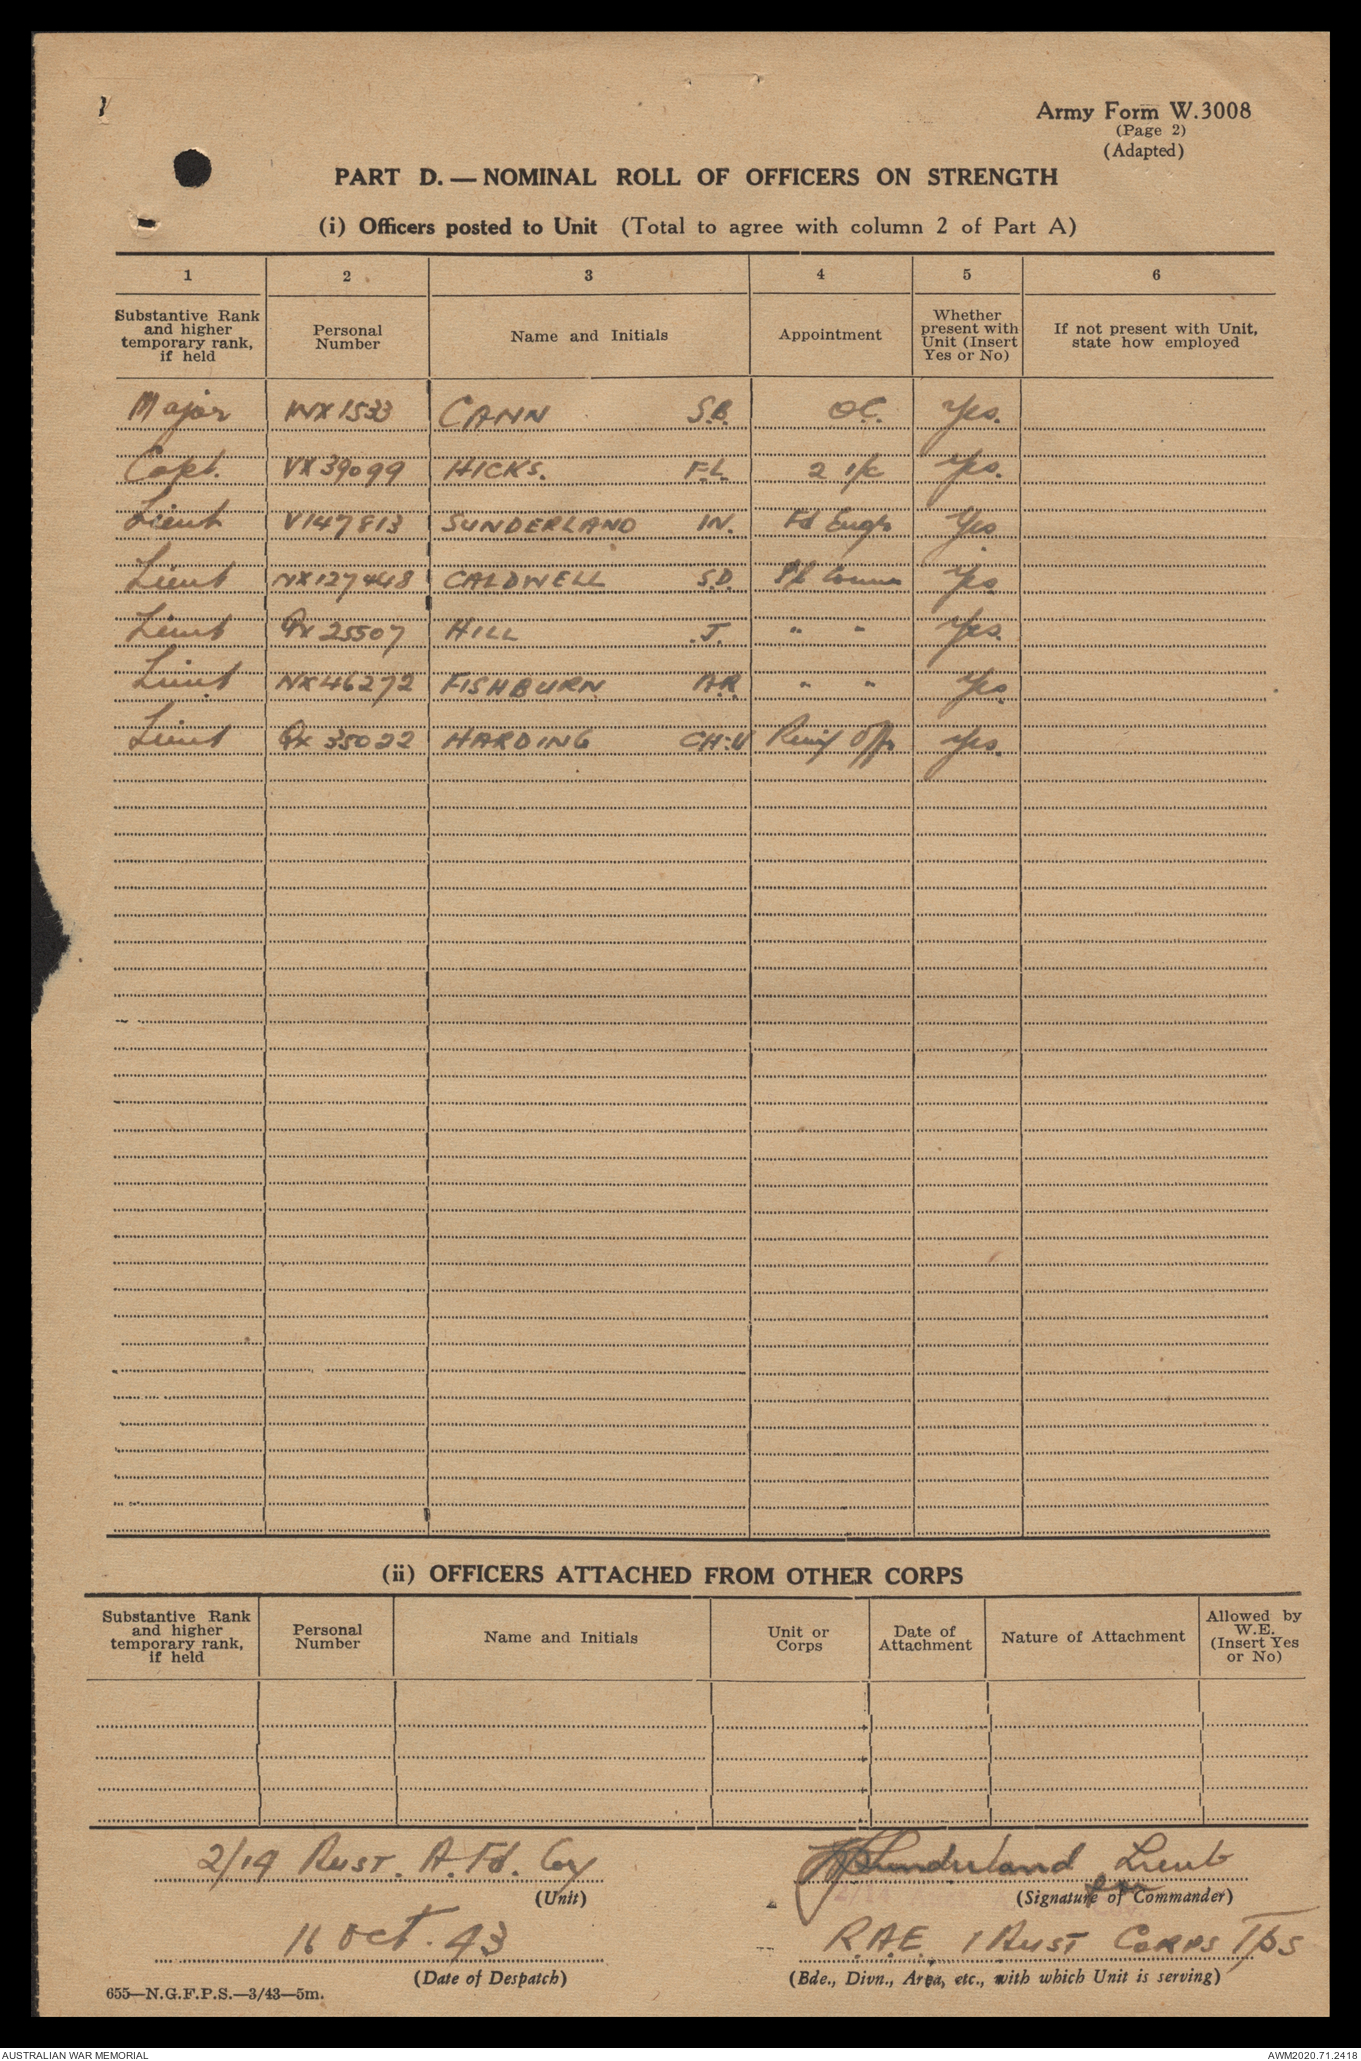 Army Form W.3008
(Page 2)
(Adapted)
PART D. — NOMINAL ROLL OF OFFICERS ON STRENGTH
(i) Officers posted to Unit (Total to agree with column 2 of Part A)
1 2 3 4 5 6
Substantive Rank and higher temporary rank, if held
Personal Number
Name and Initials
Appointment
Whether present with Unit (Insert Yes or No)
If not present with Unit, state how employed
Major WX1533 CANN S.B. OC. Yes.
Capt. VX39099 HICKS. F.L. 2 i/c Yes.
Lieut V147813 SUNDERLAND IN. Fd Engr Yes
Lieut NX127448 CALDWELL S.D. Pl Comm Yes.
Lieut QX 25507 HILL J. " " Yes.
Lieut NX46272 FISHBURN A.R. " " Yes
Lieut QX 35022 HARDING Reinf Offr Yes.
(ii) OFFICERS ATTACHED FROM OTHER CORPS
Substantive Rank and higher temporary rank, if held
Personal Number
Name and Initials
Unit or Corps
Date of Attachment
Nature of Attachment
Allowed by W.E. (Insert Yes or No)
2/14 Aust. A. Fd. Coy
(Unit)
Sunderland Lieut
for
(Signature of Commander)
16 Oct. 43
(Date of Despatch)
R.A.E. 1 Aust Corps Tps
(Bde., Divn., Area, etc., with which Unit is serving)
655—N.G.F.P.S.—3/43—5m.
AUSTRALIAN WAR MEMORIAL
AWM2020.71.2418